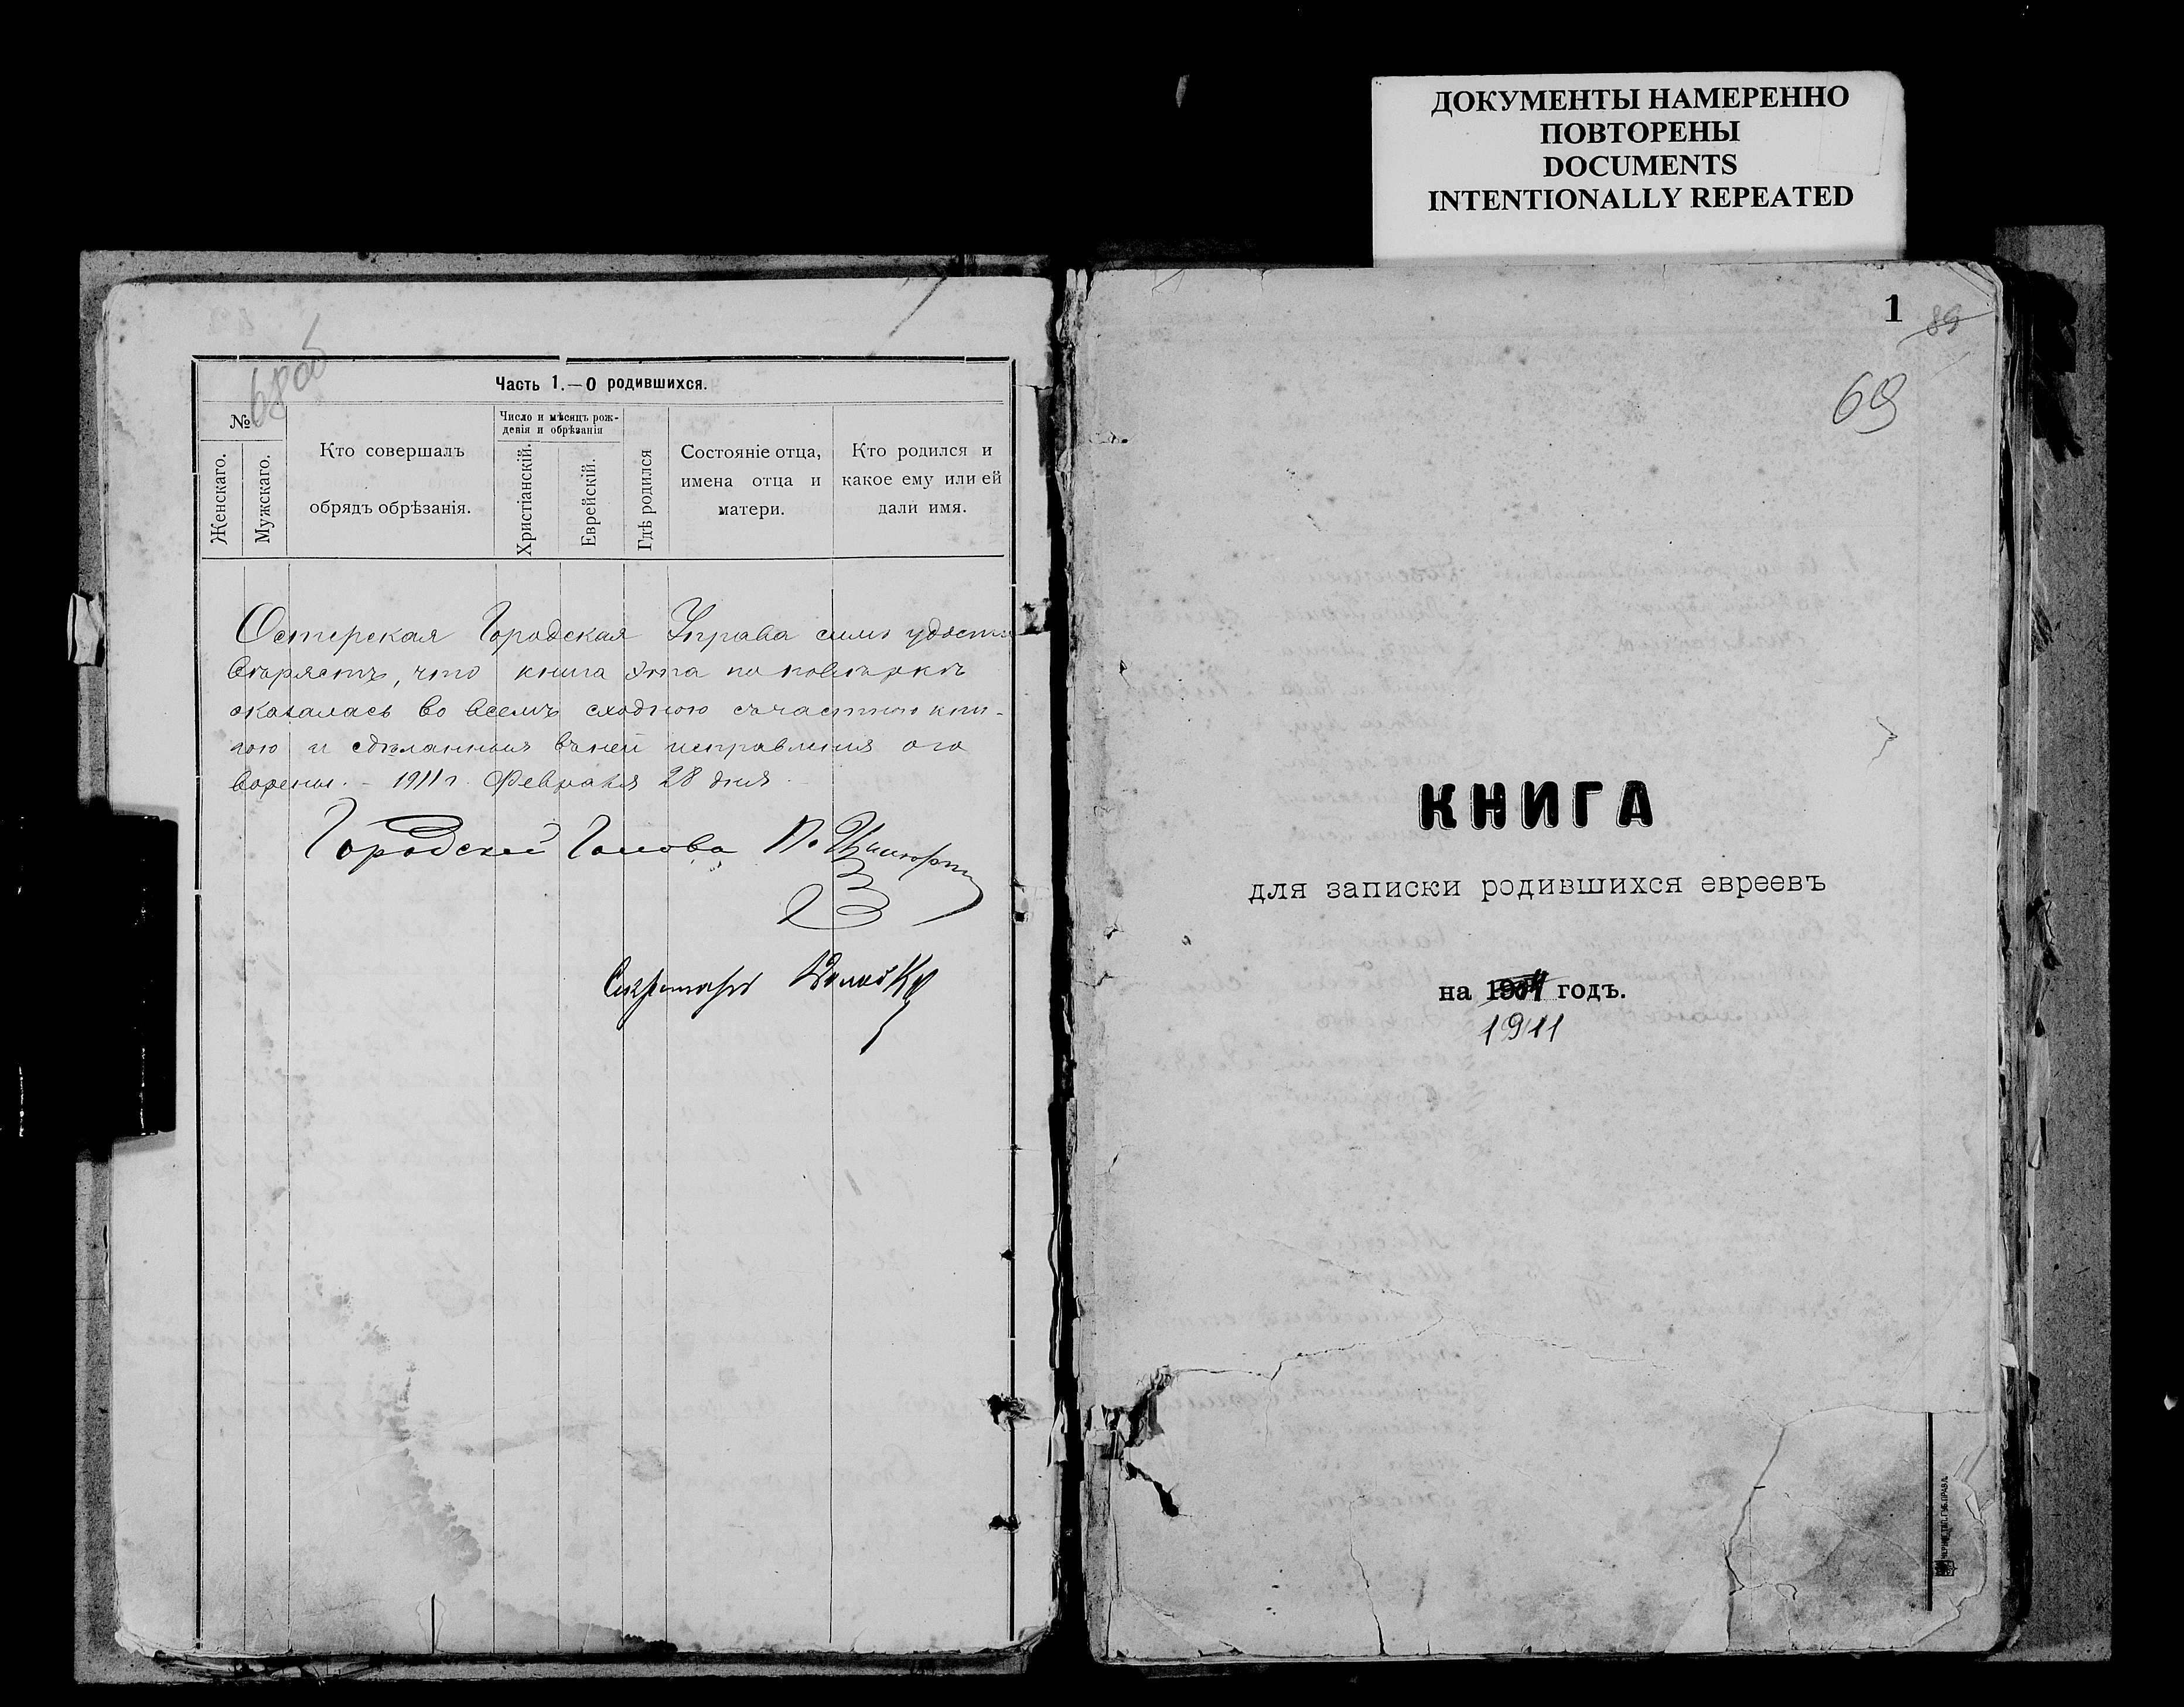 ДОКУМЕНТЫ НАМЕРЕННО
ПОВТОРЕНЫ
DOCUMENTS
INTENTIONALLY REPEATED
68об
Часть 1.—О родившихся.
№
Женскаго.
Мужскаго.
Кто совершалъ
обрядъ обрѣзанія.
Число и мѣсяцъ рож-
денія и обрѣзанія
Христіанскій.
Еврейскій.
Гдѣ родился
Состояніе отца,
имена отца и
матери.
Кто родился и
какое ему или ей
дали имя.
Остерская Городская Управа симъ удосто
вѣряетъ, что книга эта по повѣркѣ
оказалась во всемъ сходною съ частною кни-
гою и сдѣланныя въ ней исправленія ого
ворены. - 1911 г. Февраля 28 дня
Городской Голова П.
Секретарь
1
89
69
КНИГА
для записки родившихся евреевъ
на 19 годъ.
1911